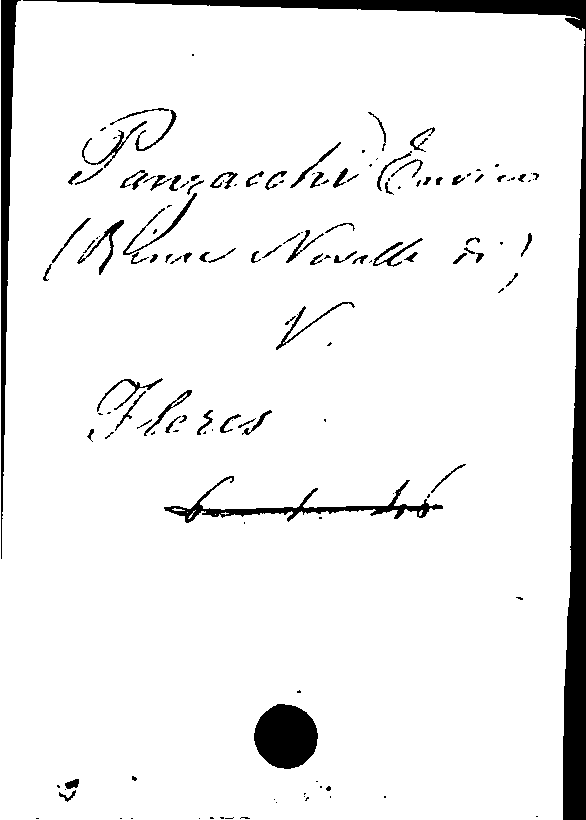 Panzacchi Enrico
(Rime Novelle di)
V.
Fleres
6. 1. 46